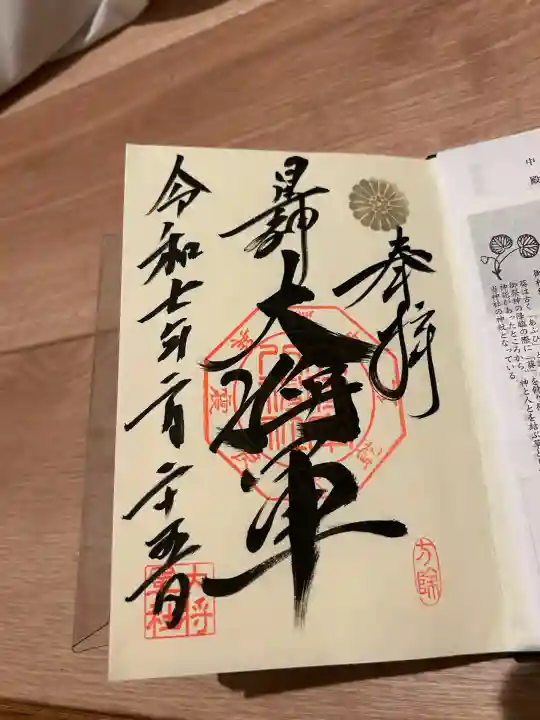 奉拝
星神
大将軍
令和七年二月二十五日
方除
大将
軍社
中
殿
葵は古く「あふひ」と
の降臨の際に「葵」を
神託があったところから、神と人とを結ぶ草
となっている。